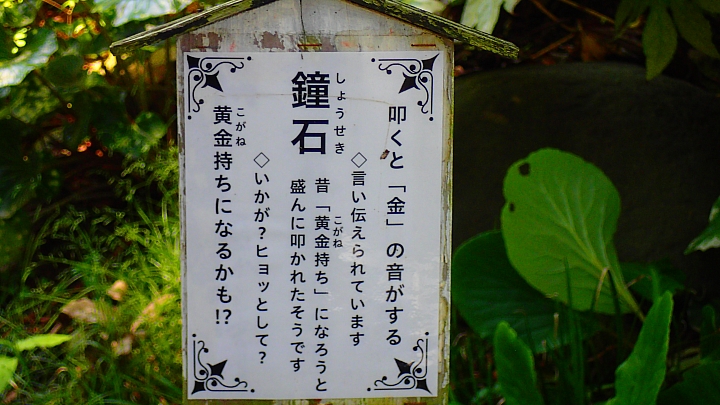 叩くと「金」の音がする
◇言い伝えられています
鐘石
しょうせき
昔「黄金持ち」になろうと
こがね
盛んに叩かれたそうです
◇いかが？ヒョッとして？
黄金持ちになるかも!?
こがね